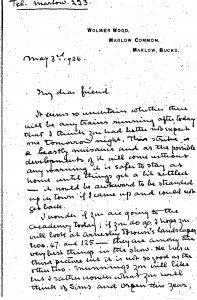 Tel. Marlow. 223.
WOLMER WOOD,
MARLOW COMMON,
MARLOW, BUCKS.
May 3rd 1926.
My dear friend
It seems so uncertain whether there
will be any trains running after today
that I think you had better not expect
me tomorrow night. This strike is
a beastly nuisance and as the possible
developments of it will come without
any warning it is safer to stay at
home until things get a bit settled
— it would be awkward to be stranded
up in town if I came up and could not
get back.
I wonder if you are going to the
Academy today; if you do go I hope you
will look at Arnesby Brown's landscapes
Nos. 67. and 125 — they are among the
very best things in the show. He has a
third picture but it is not so good as the
other two. Munnings you will like
but I rather wonder what you will
think of Sims and Orpen this year,